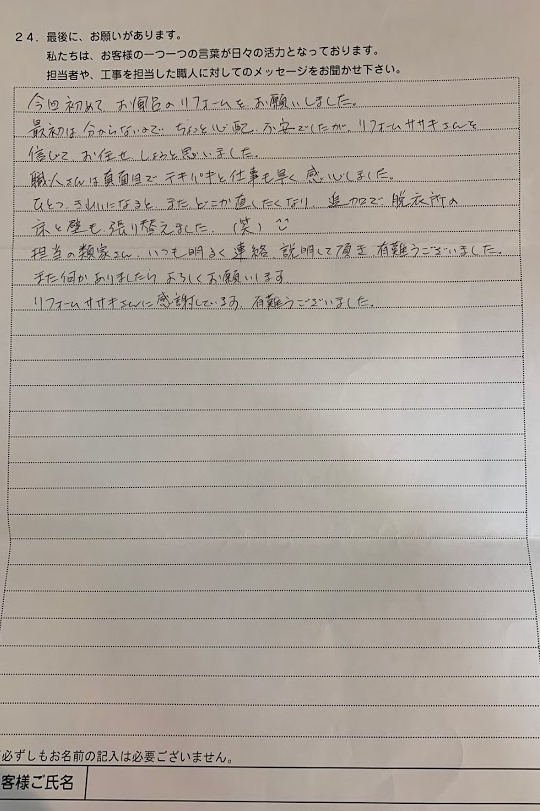 24．最後に、お願いがあります。
私たちは、お客様の一つ一つの言葉が日々の活力となっております。
担当者や、工事を担当した職人に対してのメッセージをお聞かせ下さい。
今回初めて お風呂のリフォームを お願いしました。
最初は分からないので ちょっと心配、不安でしたが、リフォームササキさんを
信じて お任せ しようと思いました。
職人さんは真面目で テキパキと仕事も早く 感心しました。
ひとつ きれいになると またどこか直したくなり、追加で 脱衣所の
床と壁も 張り替えました。（笑）
担当の類家さん、いつも明るく 連絡、説明して頂き 有難うございました。
また何かありましたら よろしくお願いします。
リフォームササキさんに感謝しています。有難うございました。
必ずしもお名前の記入は必要ございません。
客様ご氏名